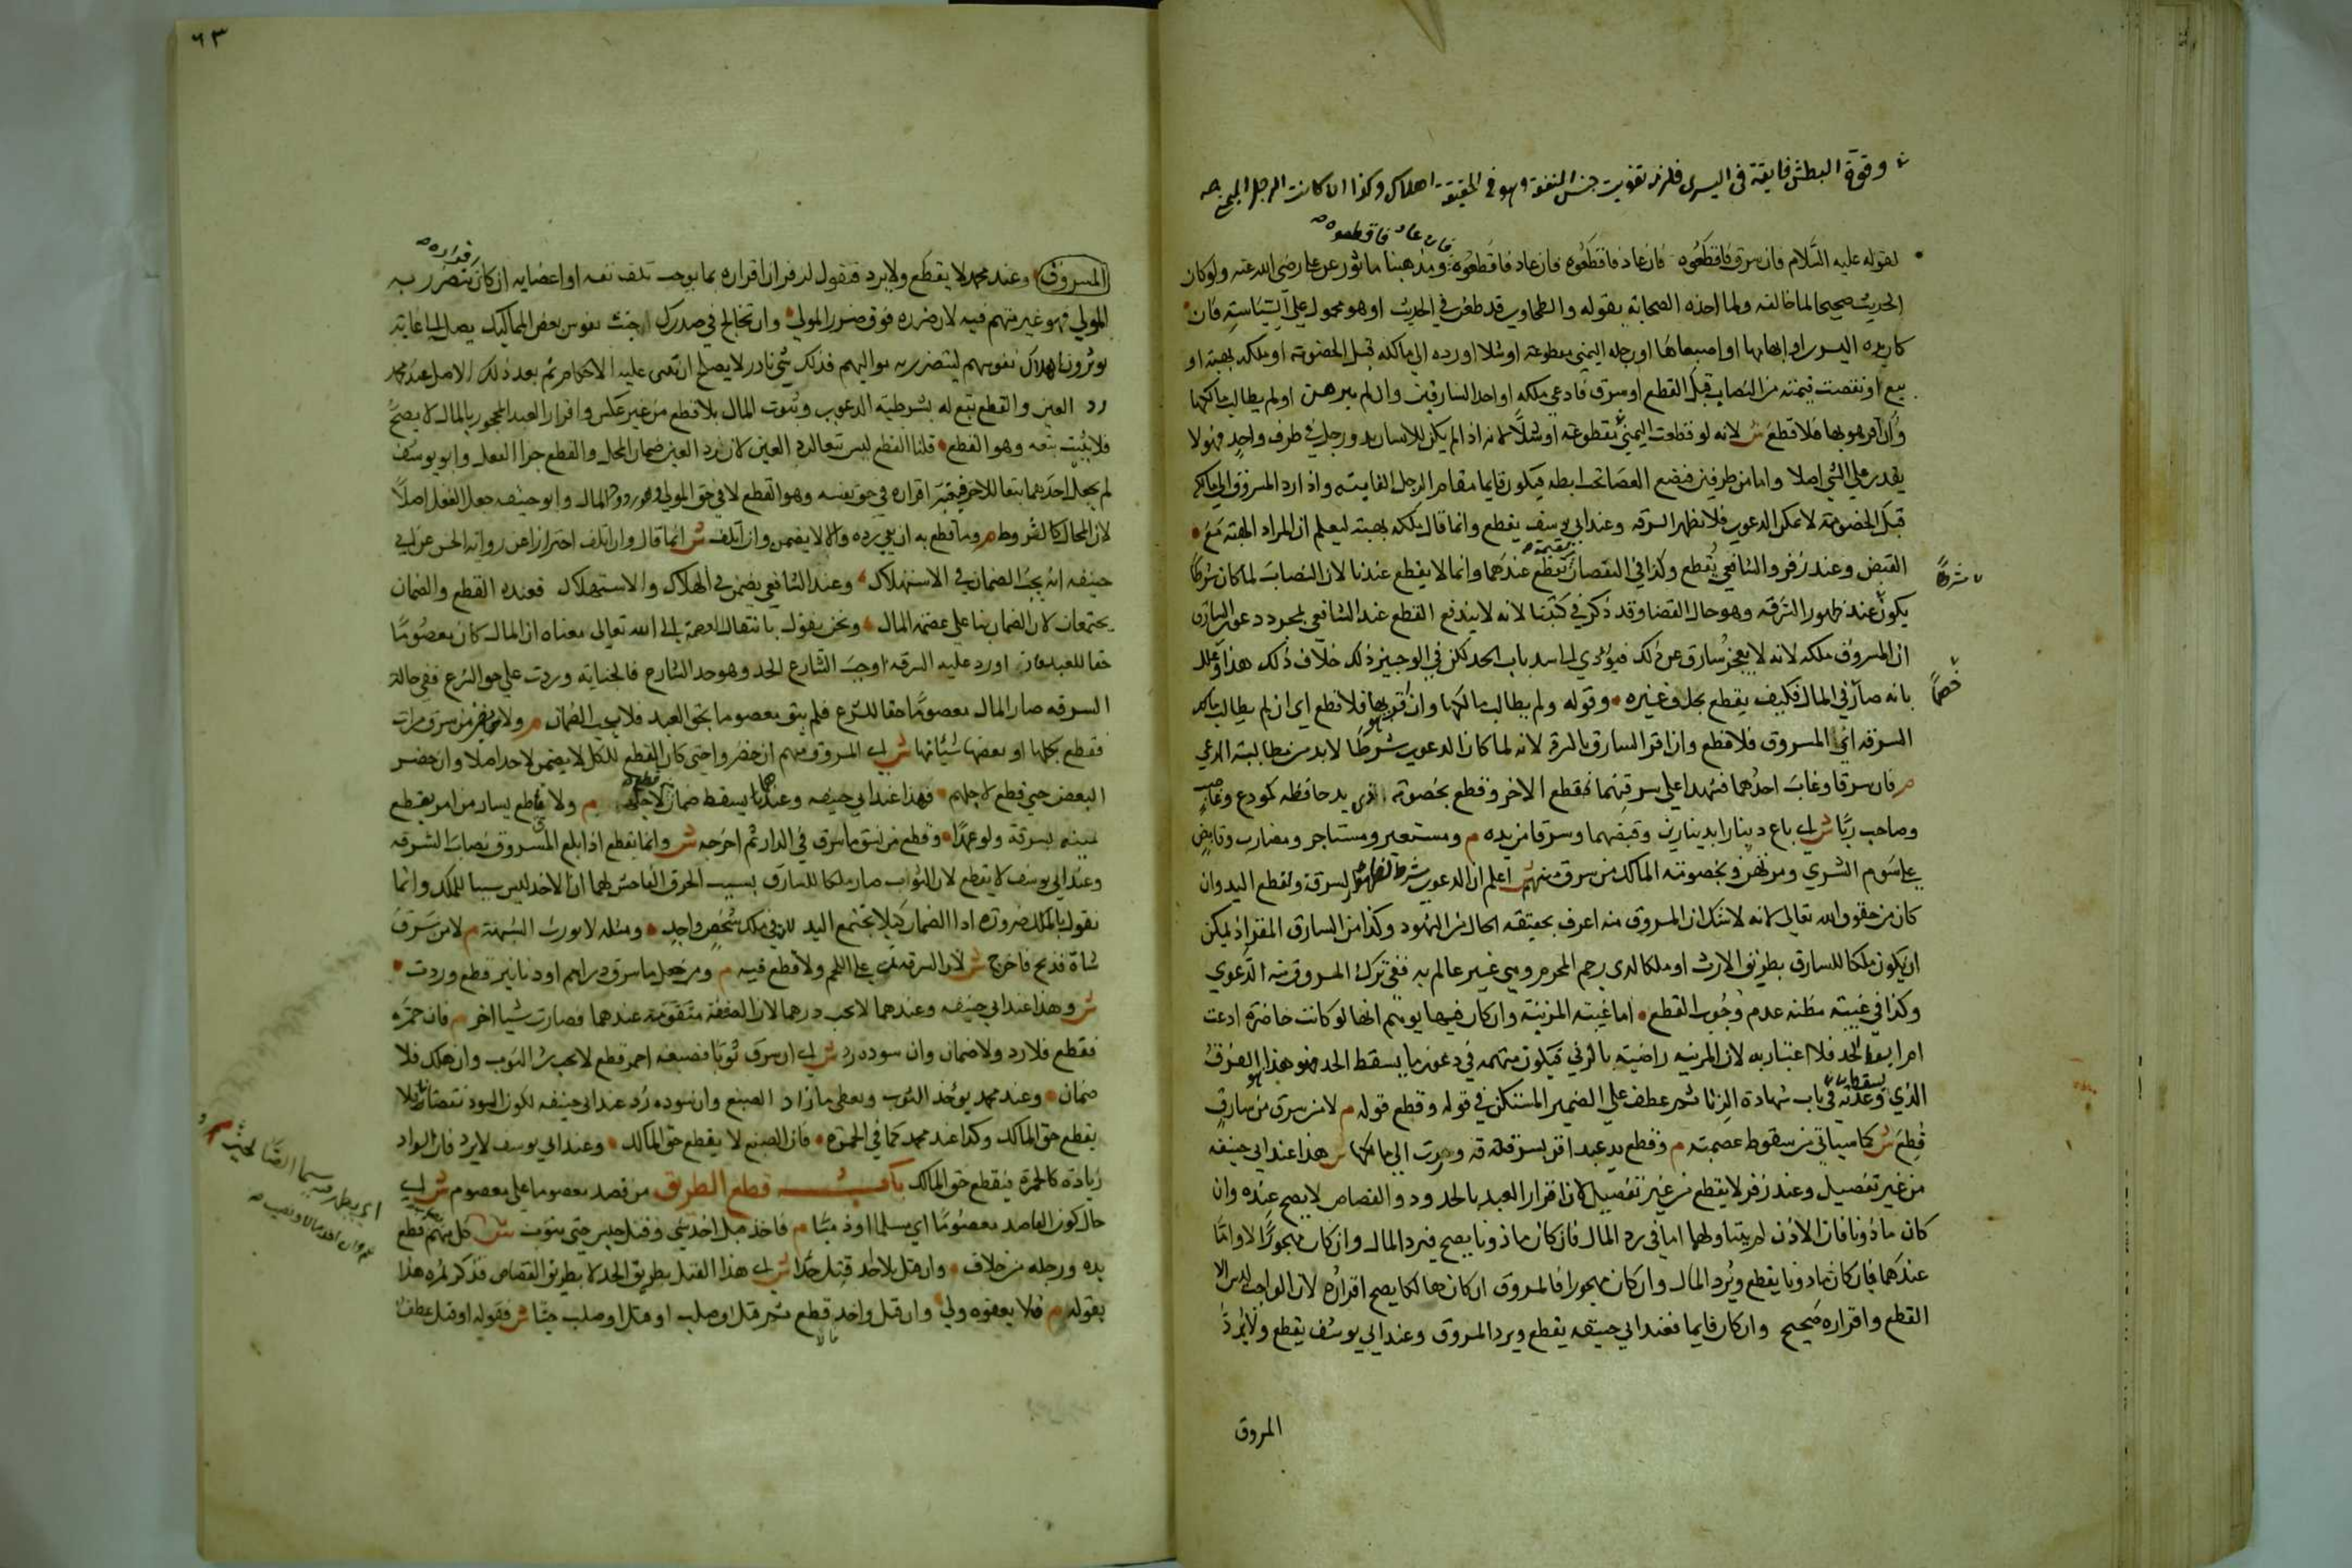 وقوة البطش فايقة في اليسرى فلزم تفويت جنس المنفعة وهو في الحقيقة اهلاك وكذا اذا كانت الرجل اليمنى
فان عاد فاقطعوه
لقوله عليه السلام فان سرق فاقطعوه فان عاد فاقطعوه فان عاد فاقطعوه ومذهبنا ماثور عن علي رضي الله عنه ولو كان
الحديث صحيحا لما خالفه ولما اخذ الصحابة بقوله والطحاوي قد طعن في الحديث او هو محمول على السياسة فان
كان يده اليسرى او ابهامها او اصبعاها او رجله اليمنى مقطوعة او شلا او رده الى مالكه قبل الخصومة او ملكه بهبة او
بيع او نقصت قيمته من النصاب قبل القطع او سرق فادعى ملكه او احد السارقين وان لم يبرهن او لم يطالب مالكها
وان اقر هو بها فلا قطع ش لانه لو قطعت اليمنى مقطوعة او شلا لانه اذا لم يكن للانسان يد ورجل في طرف واحد فهو لا
يقدر على المشي اصلا واما من طرفين فيضع العصا تحت ابطه فيكون قايما مقام الرجل الفايتة واذا رد المسروق الى مالكه
قبل الخصومة لا يمكن الدعوى فلا يظهر السرقة وعند ابي يوسف يقطع وانما قال ملكه بهبة ليعلم ان المراد الهبة مع
القبض وعند زفر والشافعي يقطع وكذا في النقصان يقطع عندهما وانما لا يقطع عندنا لان النصاب لما كان شرطا
شرطا
يكون عند ظهور السرقة وهو حال القضا وقد ذكر في كتبنا لانه لا يندفع القطع عند الشافعي بمجرد دعوى السارق
ان المسروق ملكه لانه لا يعجز سارق عن ذلك فيؤدي الى سد باب الحد لكن في الوجيز ذلك خلاف ذلك هذا وعلل
خصما
بانه صار في المال فكيف يقطع بحلف غيره وقوله ولم يطالب مالكها وان اقر هو بها فلا قطع اي ان لم يطالب مالك
السرقة اي المسروق فلا قطع وان اقر السارق بالسرقة لانه لما كان الدعوى شرطا لا بد من مطالبة المدعي
م فان سرقا وغاب احدهما فشهدا على سرقتهما قطع الاخر وقطع بخصومة ذي يد حافظة كمودع وغاصب
وصاحب ربا ش اي باع دينارا بدينارين وقبضهما وسرقا من يده م ومستعير ومستاجر ومضارب وقابض
على سوم الشرى ومرتهن وبخصومة المالك من سرق منهم ش اعلم ان الدعوى شرط لظهور السرقة وقطع اليد وان
كان من حقوق الله تعالى لانه لا شك ان المسروق منه اعرف بحقيقة الحال من الشهود وكذا من السارق المقر اذ يمكن
ان يكون ملكا للسارق بطريق الارث او ملكا لذي رحم المحرم وهي غير عالم به ففي ترك المسروق منه الدعوى
وكذا في غيبته مظنة عدم وجوب القطع اما غيبة المزنية وان كان فيها يوهم انها لو كانت حاضرة ادعت
امرا يسقط الحد فلا اعتبار به لان المزنية راضية بالزنى فيكون متهمة في دعوى ما يسقط الحد فهو هذا هو الفرق
الذي وعدته في باب شهادة الزنا ثم عطف على الضمير المستكن في قوله وقطع قوله م لا من سرق من سارق
قطع ش كما سياتي من سقوط عصمته م وقطع يد عبد اقر بسرقة وردت الى مالكها ش هذا عند ابي حنيفة
من غير تفصيل وعند زفر لا يقطع من غير تفصيل لان اقرار العبد بالحدود والقصاص لا يصح عنده وان
كان ماذونا فان الاذن لم يتناولهما اما في رد المال فان كان ماذونا يصح فيرد المال وان كان محجورا لا واما
عندهما فان كان ماذونا يقطع ويرد المال وان كان محجورا فالمسروق ان كان هالكا يصح اقراره لان الواجب ليس الا
القطع واقراره صحيح وان كان قايما فعند ابي حنيفة يقطع ويرد المسروق وعند ابي يوسف يقطع ولا يرد
المسروق
٦٣
المسروق وعند محمد لا يقطع ولا يرد فنقول لزفر ان اقراره بما يوجب تلف نفسه او اعضايه ان كان يتضرر به
المولى فهو غير متهم فيه لان ضرره فوق ضرر المولى وان تخالج في صدرك خبث نفوس بعض المماليك يصل الى غاية
يوثرون اهلاك نفوسهم ليتضرر به مواليهم فذلك شي نادر لا يصلح ان تبنى عليه الاحكام ثم بعد ذلك الاصل عند محمد
رد العين والقطع تبع له بشرطية الدعوى وثبوت المال بلا قطع من غير عكس واقرار العبد المحجور بالمال لا يصح
فلا يثبت تبعه وهو القطع قلنا القطع ليس تبعا لرد العين لان رد العين ضمان المحل والقطع جزا الفعل وابو يوسف
لم يجعل احدهما تبعا للاخر فيعتبر اقراره في حق نفسه وهو القطع لا في حق المولى وهو رد المال وابو حنيفة جعل الفعل اصلا
لان المحال كالشروط م وما قطع به ان بقي رده والا لا يضمن وان اتلف ش انما قال وان اتلف احترازا عن رواية الحسن عن ابي
حنيفة انه يجب الضمان في الاستهلاك وعند الشافعي يضمن في الهلاك والاستهلاك فعنده القطع والضمان
يجتمعان لان الضمان بنا على عصمة المال ونحن نقول بانتقال العصمة الى الله تعالى معناه ان المال كان معصوما
حقا للعبد فاذا اورد عليه السرقة اوجب الشارع الحد وهو حد الشارع فالجناية وردت على حق الشرع ففي حالة
السرقة صار المال معصوما حقا للشرع فلم يبق معصوما بحق العبد فلا يجب الضمان م ولا يضمن من سرق مرات
فقطع بكلها او بعضها شيئا منها ش اي المسروق منهم ان حضروا حتى كان القطع للكل لا يضمن لاحد اصلا وان حضر
البعض حتى قطع لاجلهم فهذا عند ابي حنيفة وعندهما يسقط ضمان لاجله م ولا قاطع يسار من امر بقطع
يمينه بسرقة ولو عمدا وقطع من شق ما سرق في الدار ثم اخرجه ش وانما يقطع اذا بلغ المسروق نصاب السرقة
وعند ابي يوسف لا يقطع لان الثواب صار ملكا للسارق بسبب الخرق الفاحش لهما ان الاخذ ليس سببا للملك وانما
نقول بالملك ضرورة ادا الضمان كيلا يجتمع البدلان في ملك شخص واحد ومثله لا يورث الشبهة م لا من سرق
شاة فذبح فاخرج ش لان السرقة تمت على اللحم ولا قطع فيه م ومن جعل ما سرق دراهم او دنانير قطع وردت
ش وهذا عند ابي حنيفة وعندهما لا يجب درهما لان الصنعة متقومة عندهما فصارت شيا اخر م فان حمره
فقطع فلا رد ولا ضمان وان سوده رد ش اي ان سرق ثوبا فصبغه احمر فقطع لا يجب رد الثوب وان هلك فلا
ضمان وعند محمد يوخذ الثوب ويعطى ما زاد الصبغ وان سوده رد عند ابي حنيفة لكون السود نقصانا فلا
يقطع حق المالك وكذا عند محمد كما في الحمرة فان الصبغ لا يقطع حق المالك وعند ابي يوسف لا يرد فان السواد
زيادة كالحمرة فيقطع حق المالك باب قطع الطريق من قصد معصوما على معصوم ش اي
حال كون القاصد معصوما اي مسلما او ذميا م فاخذ قبل اخذ شي وقتل حبس حتى يتوب كل منهم قطع
يده ورجله من خلاف وان قتل بلا اخذ قتل حدا ش اي هذا القتل بطريق الحد لا بطريق القصاص فذكر ثمره هذا
بقوله م فلا يعفوه ولي وان قتل واخذ قطع ثم قتل او صلب او قتل او صلب حيا ش فقوله او قتل عطف